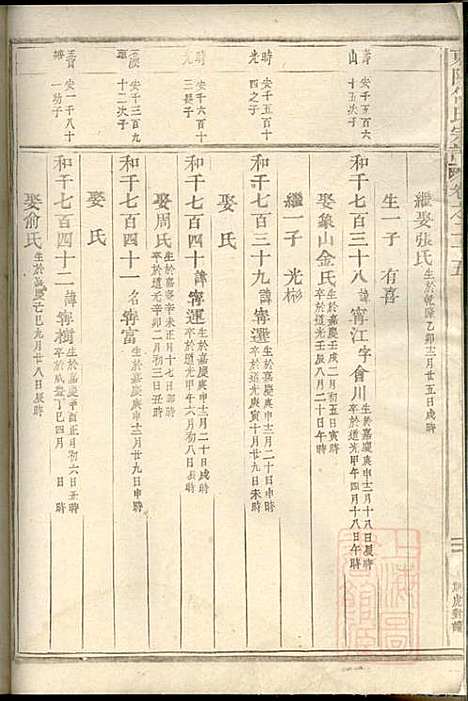 繼娶張氏生於乾隆乙卯十二月廿五日戌時
生一子 有喜
和千七百三十八諱甯江字會川生於嘉慶庚申十二月十八日辰時 卒於道光甲午四月十八日午時
娶象山金氏生於嘉慶壬戌二月初五日寅時 卒於道光壬辰八月二十日午時
繼一子 光彬
和千七百三十九諱甯運生於嘉慶庚申十二月二十日申時 卒於道光庚寅十二月廿九日未時
娶 氏
和千七百四十諱甯運生於嘉慶庚申十二月二十日戌時 卒於道光甲午六月初八日辰時
娶周氏生於嘉慶辛未正月十七日卯時 卒於道光辛卯二月初三日丑時
娶 氏
和千七百四十一名甯富生於嘉慶庚申十二月廿九日申時
和千七百四十二諱甯樹生於嘉慶辛酉正月初六日丑時 卒於咸豐丁巳四月 日 時
娶俞氏生於嘉慶 巳九月廿八日辰時
安千五百六十五次子
時 安千五百十四之子
時 安千六百十三長子
安千三百九十二次子
安千八十一幼子
上海圖書館藏